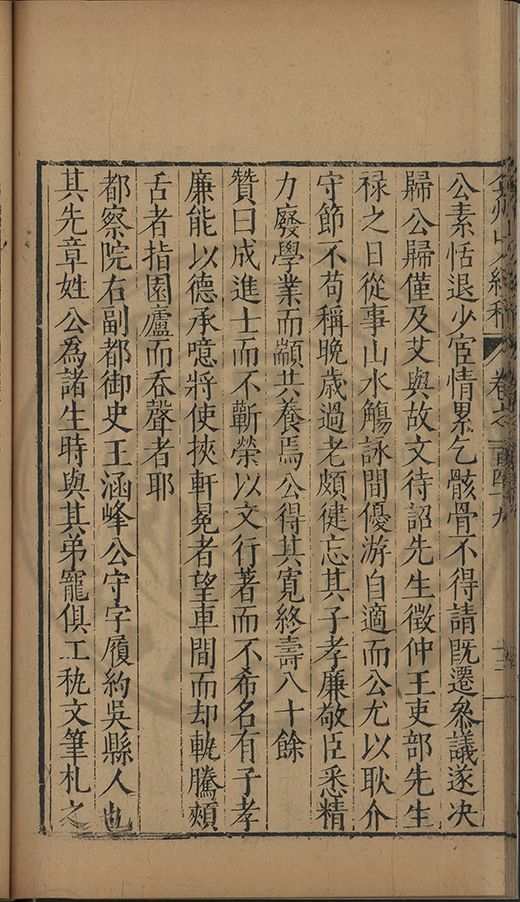 弇州山人續稿 卷之一百四十九 十二
公素恬退少宦情累乞骸骨不得請既遷參議遂决
歸公歸僅及艾與故文待詔先生徵仲王吏部先生
禄之日從事山水觴詠間優游自適而公尤以耿介
守節不苟稱晚歲過老頗健忘其子孝廉敬臣悉精
力廢學業而顓共養焉公得其寬終壽八十餘
贊曰成進士而不蘄榮以文行著而不希名有子孝
廉能以德承噫將使挾軒冕者望車間而却軌騰頰
舌者指園廬而呑聲者耶
都察院右副都御史王涵峰公守字履約吳縣人也
其先章姓公為諸生時與其弟寵俱工秇文筆札之